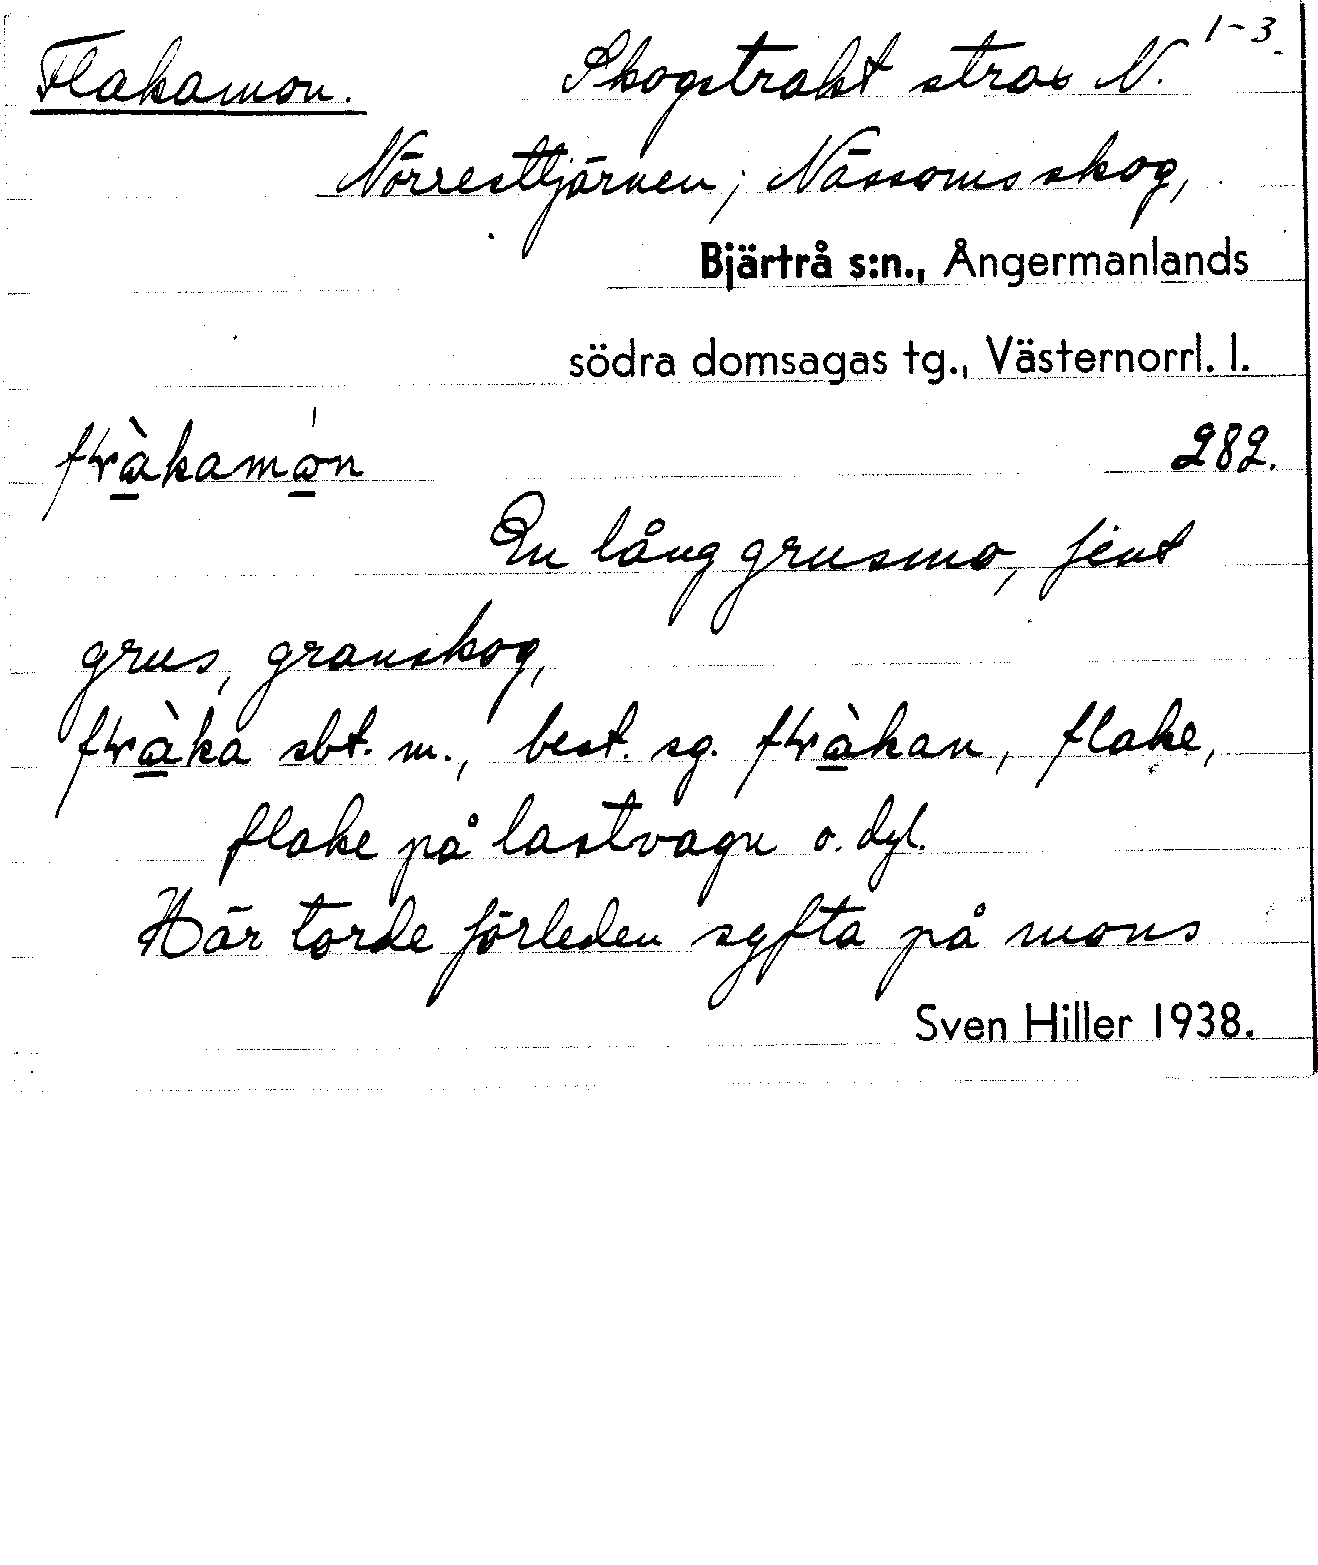 1-3.
Flakamon. Skogstrakt strax N.
Nörresttjärnen; Nässomsskog,
Bjärtrå s:n., Ångermanlands
södra domsagas tg., Västernorrl. l.
282.
En lång grusmo, fint
grus, granskog,
sbt. m., best. sg. flake,
flake på lastvagn o. dyl.
Här torde förleden syfta på mons
Sven Hiller 1938.